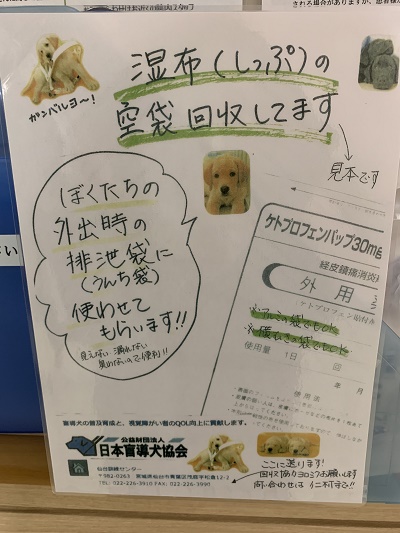 湿布(しっぷ)の
空袋回収してます
ガンバルヨ～!
見本です
ぼくたちの
外出時の
排泄袋に
(うんち袋)
使わせて
もらいます!!
見えない 漏れない
臭わないので便利!!
ケトプロフェンパップ30mg
経皮鎮痛消炎
外用
使用量 1日 回
年 月
使用法
盲導犬の普及育成と、視覚障がい者のQOL向上に貢献します。
公益財団法人
日本盲導犬協会
仙台訓練センター
〒982-0263 宮城県仙台市青葉区茂庭字松倉12-2
TEL: 022-226-3910 FAX: 022-226-3990
ここに送ります!
回収協力ヨロシクお願いします